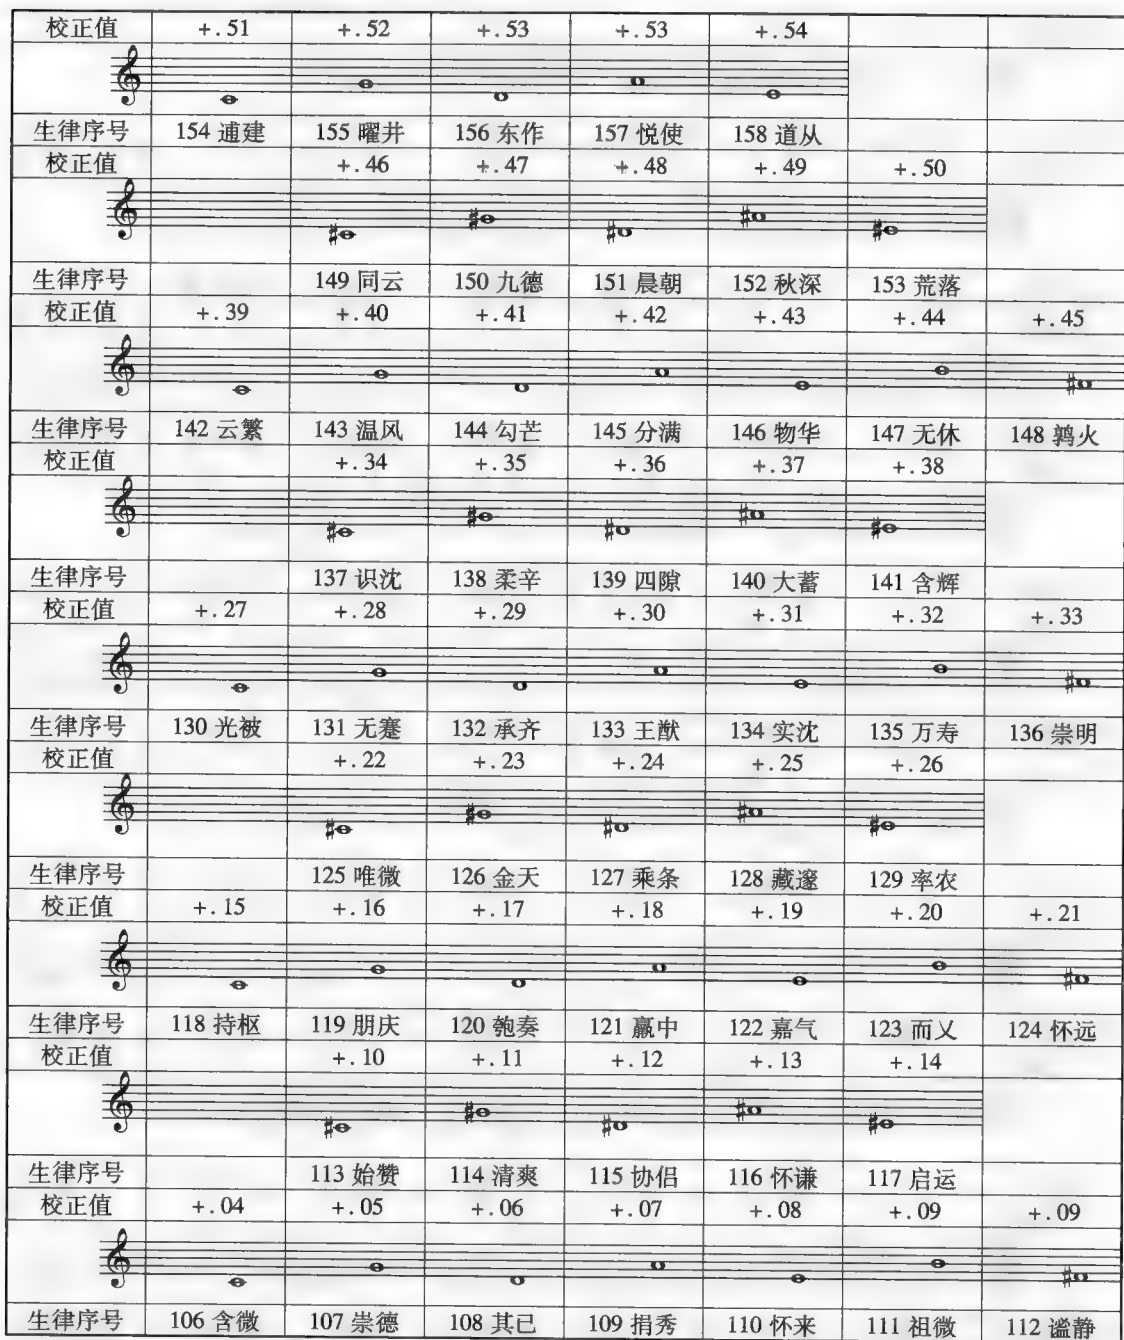 校正值 +.51 +.52 +.53 +.53 +.54
生律序号 154 逋建 155 曜井 156 东作 157 悦使 158 道从
校正值 +.46 +.47 +.48 +.49 +.50
生律序号 149 同云 150 九德 151 晨朝 152 秋深 153 荒落
校正值 +.39 +.40 +.41 +.42 +.43 +.44 +.45
生律序号 142 云繁 143 温风 144 勾芒 145 分满 146 物华 147 无休 148 鹑火
校正值 +.34 +.35 +.36 +.37 +.38
生律序号 137 识沈 138 柔辛 139 四隙 140 大蓄 141 含辉
校正值 +.27 +.28 +.29 +.30 +.31 +.32 +.33
生律序号 130 光被 131 无蹇 132 承齐 133 王猷 134 实沈 135 万寿 136 崇明
校正值 +.22 +.23 +.24 +.25 +.26
生律序号 125 唯微 126 金天 127 乘条 128 藏邃 129 率农
校正值 +.15 +.16 +.17 +.18 +.19 +.20 +.21
生律序号 118 持枢 119 朋庆 120 匏奏 121 赢中 122 嘉气 123 而乂 124 怀远
校正值 +.10 +.11 +.12 +.13 +.14
生律序号 113 始赞 114 清爽 115 协侣 116 怀谦 117 启运
校正值 +.04 +.05 +.06 +.07 +.08 +.09 +.09
生律序号 106 含微 107 崇德 108 其已 109 捐秀 110 怀来 111 祖微 112 谧静